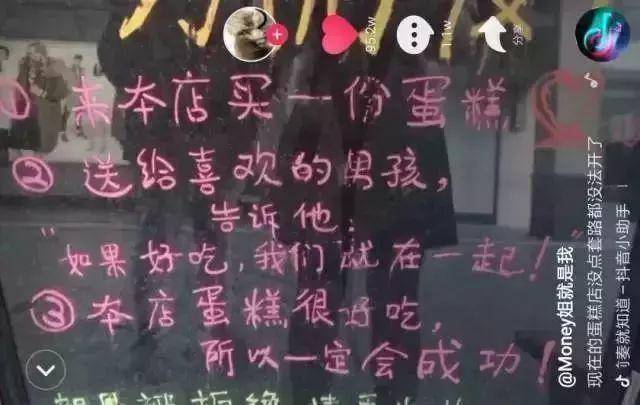 ① 来本店买一份蛋糕
② 送给喜欢的男孩，
告诉他：
"如果好吃，我们就在一起！"
③ 本店蛋糕很好吃，
所以一定会成功！
95.2w
1.1w
分享
@Money姐就是我
现在的蛋糕店没点套路都没法开了
奏就知道 - 抖音小助手